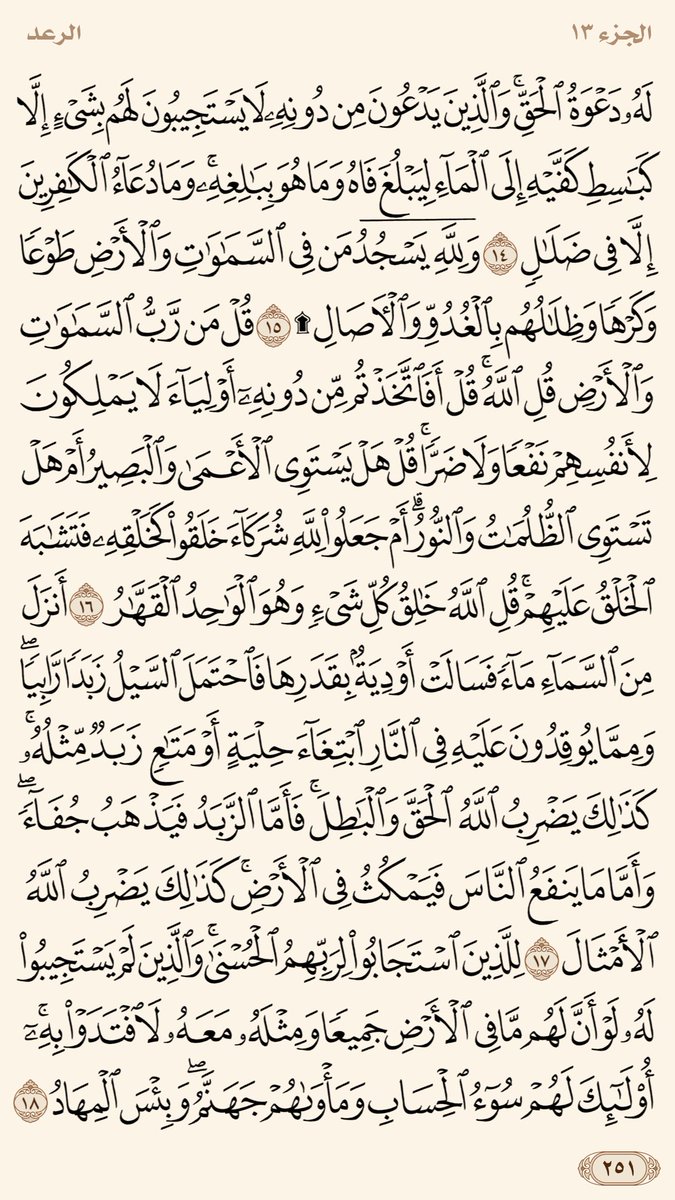 الجزء ١٣ الرعد
لَهُۥ دَعْوَةُ ٱلْحَقِّۚ وَٱلَّذِينَ يَدْعُونَ مِن دُونِهِۦ لَا يَسْتَجِيبُونَ لَهُم بِشَىْءٍ إِلَّا
كَبَـٰسِطِ كَفَّيْهِ إِلَى ٱلْمَآءِ لِيَبْلُغَ فَاهُ وَمَا هُوَ بِبَـٰلِغِهِۦۚ وَمَا دُعَآءُ ٱلْكَـٰفِرِينَ
إِلَّا فِى ضَلَـٰلٍ ١٤ وَلِلَّهِ يَسْجُدُ مَن فِى ٱلسَّمَـٰوَٰتِ وَٱلْأَرْضِ طَوْعًا
وَكَرْهًا وَظِلَـٰلُهُم بِٱلْغُدُوِّ وَٱلْـَٔاصَالِ ۩ ١٥ قُلْ مَن رَّبُّ ٱلسَّمَـٰوَٰتِ
وَٱلْأَرْضِ قُلِ ٱللَّهُۚ قُلْ أَفَٱتَّخَذْتُم مِّن دُونِهِۦٓ أَوْلِيَآءَ لَا يَمْلِكُونَ
لِأَنفُسِهِمْ نَفْعًا وَلَا ضَرًّاۚ قُلْ هَلْ يَسْتَوِى ٱلْأَعْمَىٰ وَٱلْبَصِيرُ أَمْ هَلْ
تَسْتَوِى ٱلظُّلُمَـٰتُ وَٱلنُّورُۗ أَمْ جَعَلُوا۟ لِلَّهِ شُرَكَآءَ خَلَقُوا۟ كَخَلْقِهِۦ فَتَشَـٰبَهَ
ٱلْخَلْقُ عَلَيْهِمْۚ قُلِ ٱللَّهُ خَـٰلِقُ كُلِّ شَىْءٍ وَهُوَ ٱلْوَٰحِدُ ٱلْقَهَّـٰرُ ١٦ أَنزَلَ
مِنَ ٱلسَّمَآءِ مَآءً فَسَالَتْ أَوْدِيَةٌۢ بِقَدَرِهَا فَٱحْتَمَلَ ٱلسَّيْلُ زَبَدًا رَّابِيًاۖ
وَمِمَّا يُوقِدُونَ عَلَيْهِ فِى ٱلنَّارِ ٱبْتِغَآءَ حِلْيَةٍ أَوْ مَتَـٰعٍ زَبَدٌ مِّثْلُهُۥۚ
كَذَٰلِكَ يَضْرِبُ ٱللَّهُ ٱلْحَقَّ وَٱلْبَـٰطِلَۚ فَأَمَّا ٱلزَّبَدُ فَيَذْهَبُ جُفَآءًۖ
وَأَمَّا مَا يَنفَعُ ٱلنَّاسَ فَيَمْكُثُ فِى ٱلْأَرْضِۚ كَذَٰلِكَ يَضْرِبُ ٱللَّهُ
ٱلْأَمْثَالَ ١٧ لِلَّذِينَ ٱسْتَجَابُوا۟ لِرَبِّهِمُ ٱلْحُسْنَىٰۚ وَٱلَّذِينَ لَمْ يَسْتَجِيبُوا۟
لَهُۥ لَوْ أَنَّ لَهُم مَّا فِى ٱلْأَرْضِ جَمِيعًا وَمِثْلَهُۥ مَعَهُۥ لَٱفْتَدَوْا۟ بِهِۦٓۚ
أُو۟لَـٰٓئِكَ لَهُمْ سُوٓءُ ٱلْحِسَابِ وَمَأْوَىٰهُمْ جَهَنَّمُۖ وَبِئْسَ ٱلْمِهَادُ ١٨
٢٥١